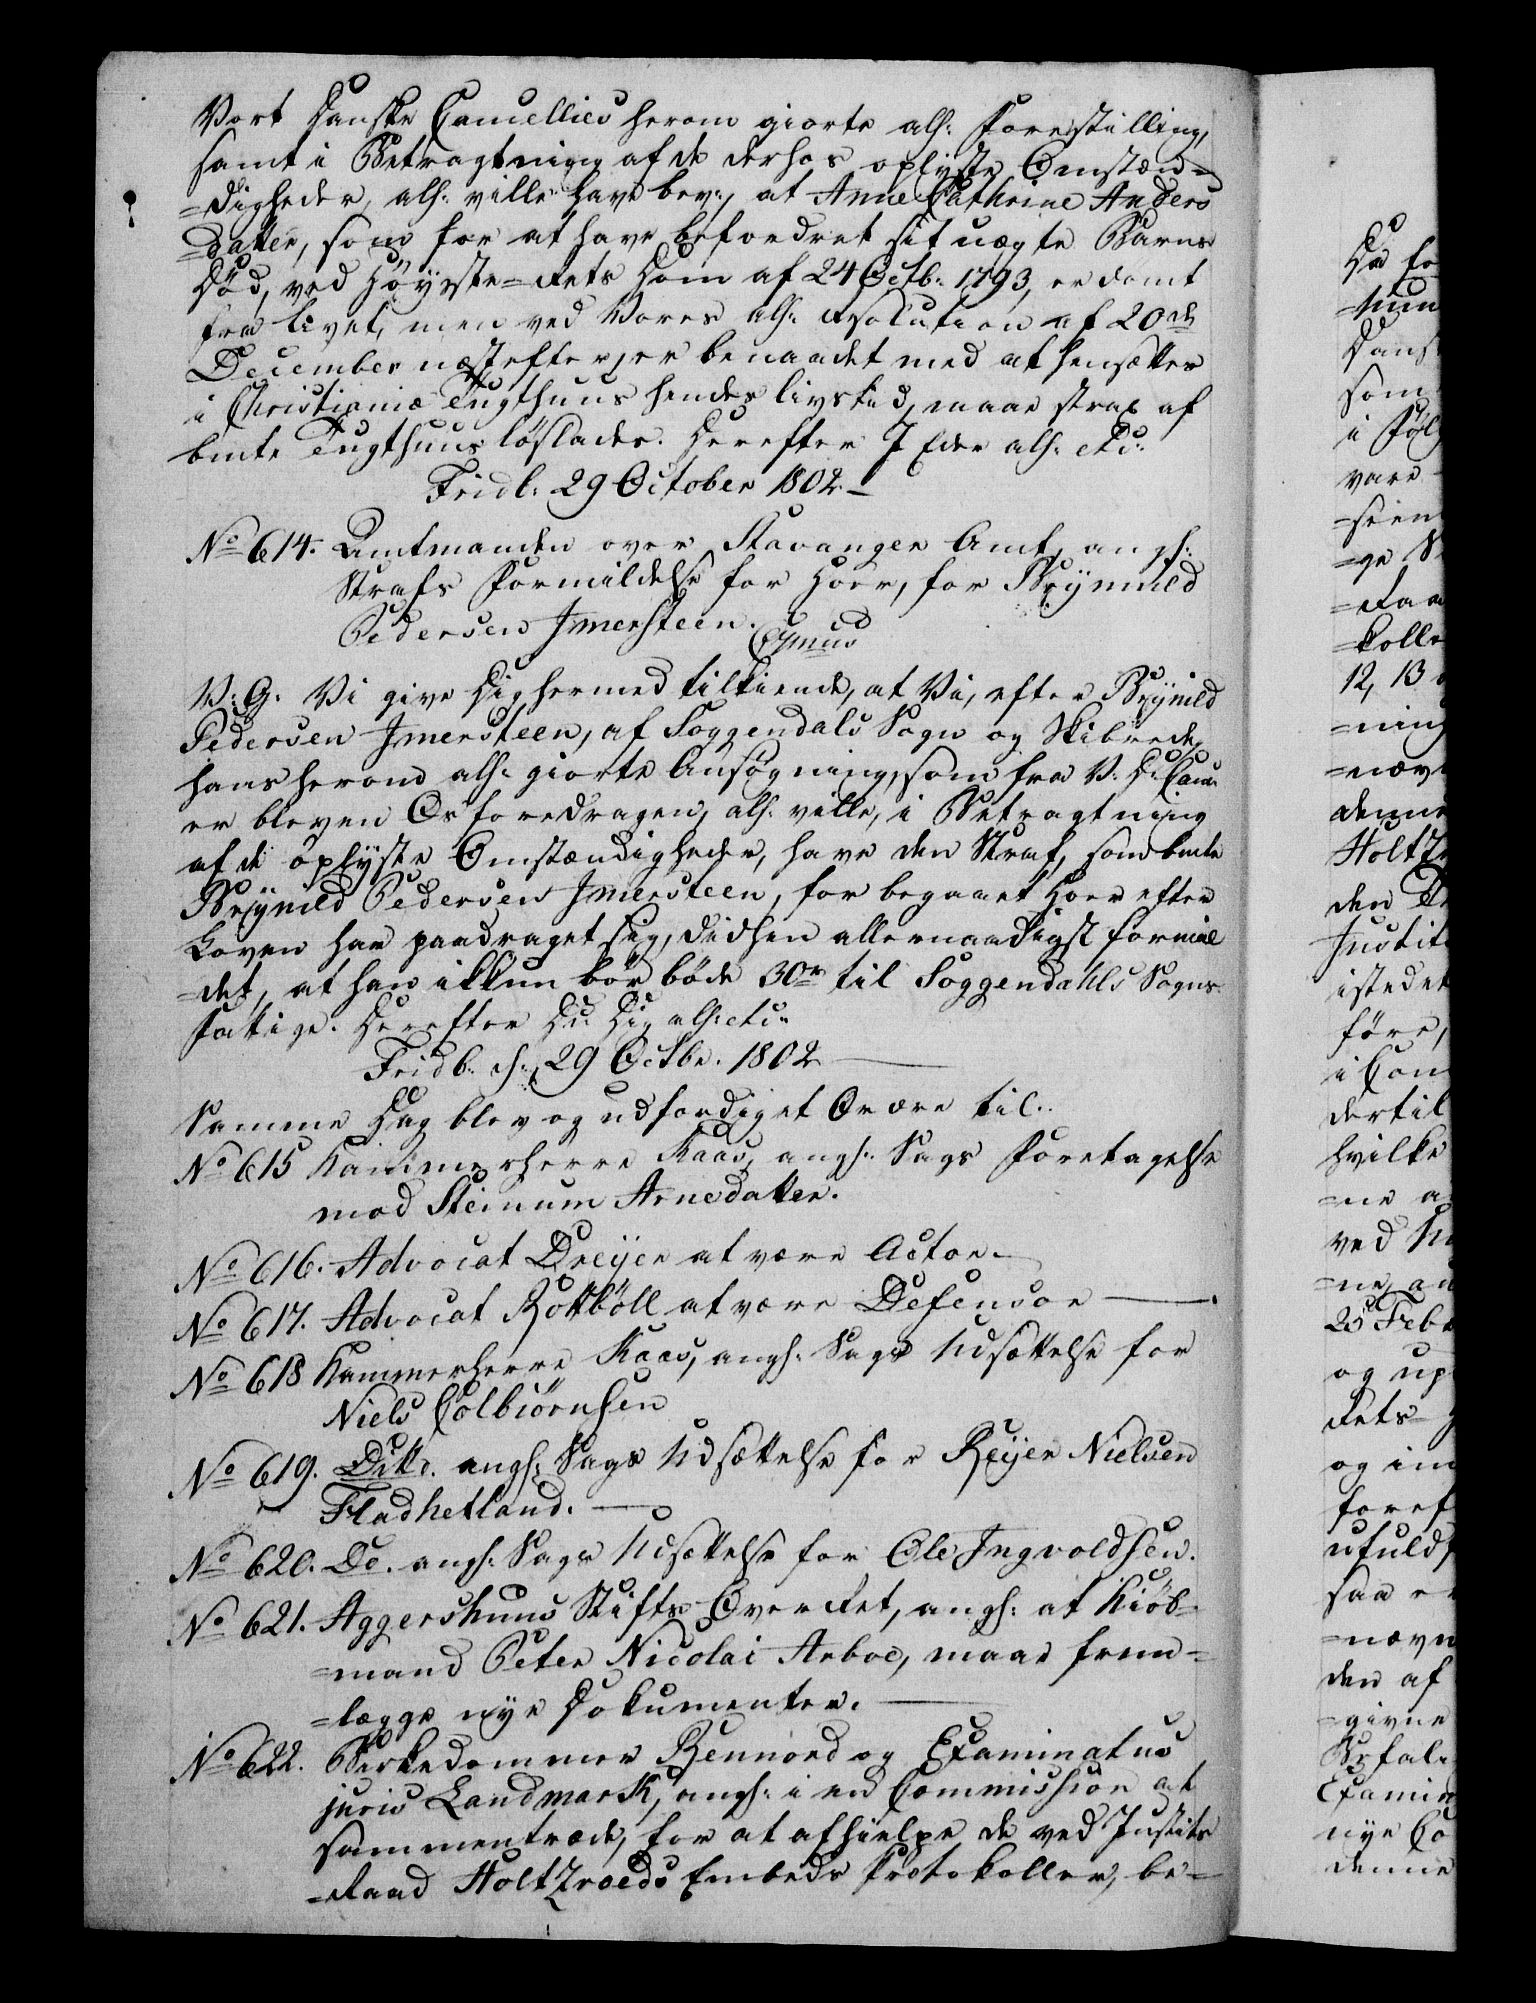 Vort Danske Cancellies herom giorte alh: Forestilling,
samt i Betragtning af de derhos oplyste Omstæn-
=digheder, alh: ville have bev:, at Anne Cathrine Anders
=datter, som for at have befordret sit uægte Barns
Död, ved Höyeste=Rets Dom af 24 Octb: 1793, er dömt
fra Livet, men ved Vores alh: Resolution af 20de
December næstefter, er benaadet med at hensættes
i Christianiæ Tugthuus hendes Livstid, maae strax af
bmte Tugthuus löslades. Derefter I Eder alh: etc:
Fridb: 29 October 1802.
No 614. Amtmanden over Stavanger Amt, angh:
Strafs Formildelse for Hoer, for Brynnild
Pedersen Imersteen.
V: G: Vi give Dig hermed tilkiende, at Vi, efter Brynild
Pedersen Imersteen, af Soggendals Sogn og Skibrede,
hans herom alh: giorte Ansøgning, som fra V: D: Canc:
er bleven Os foredragen, alh: ville, i Betragtning
af de oplyste Omstændigheder, have den Straf, som bmte
Brynild Pedersen Imersteen, for begaaet Hoer efter
Loven har paadraget sig, didhen allernaadigst formil
=det, at han ikkun bör böde 30 rd til Soggendahls Sogns
Fattige. Derefter Du Dig alh: etc:
Fridb: d: 29 Octbr. 1802
Samme Dag blev og udfærdiget Ordre til:
No 615 Kammerherre Kaas, angh: Sags Foretagelse
mod Steinum Arnedatter.
No 616. Advocat Dreyer at være Actor.
No 617. Advocat Rottböll at være Defensor
No 618 Kammerherre Kaas, angh: Sags Udsættelse for
Niels Colbiörnsen
No 619. Ditto. angh: Sags Udsættelse for Reyer Nielsen
Fladhetland.
No 620. Do. angh: Sags Udsættelse for Ole Ingvoldsen.
No 621. Aggershuus Stifts Over Ret, angh: at Kiöb-
=mand Peter Nicolai Arboe, maae frem=
=lægge nye Dokumenter.
No 622. Birkedommer Bennord og Examinatus
juris Landmark, angh: i en Commission at
sammentræde, for at afhielpe de ved Justits
=Raad Holtzroeds Embeds Protokoller, be=
Da fo
=mun
Dans
som
i Föl
vare
=sien
=ge
=Raa
=kolle
12, 13
=ning
=næv
denne
Holtz
den
Justit
istedet
före,
i Com
dertil
hvilke
=ne a
ved
=ne, an
25 Feb
og up
Rets
og in
foref
ufuld
saa e
=nævn
den af
=givne
Befal
Examin
nye Co
denne